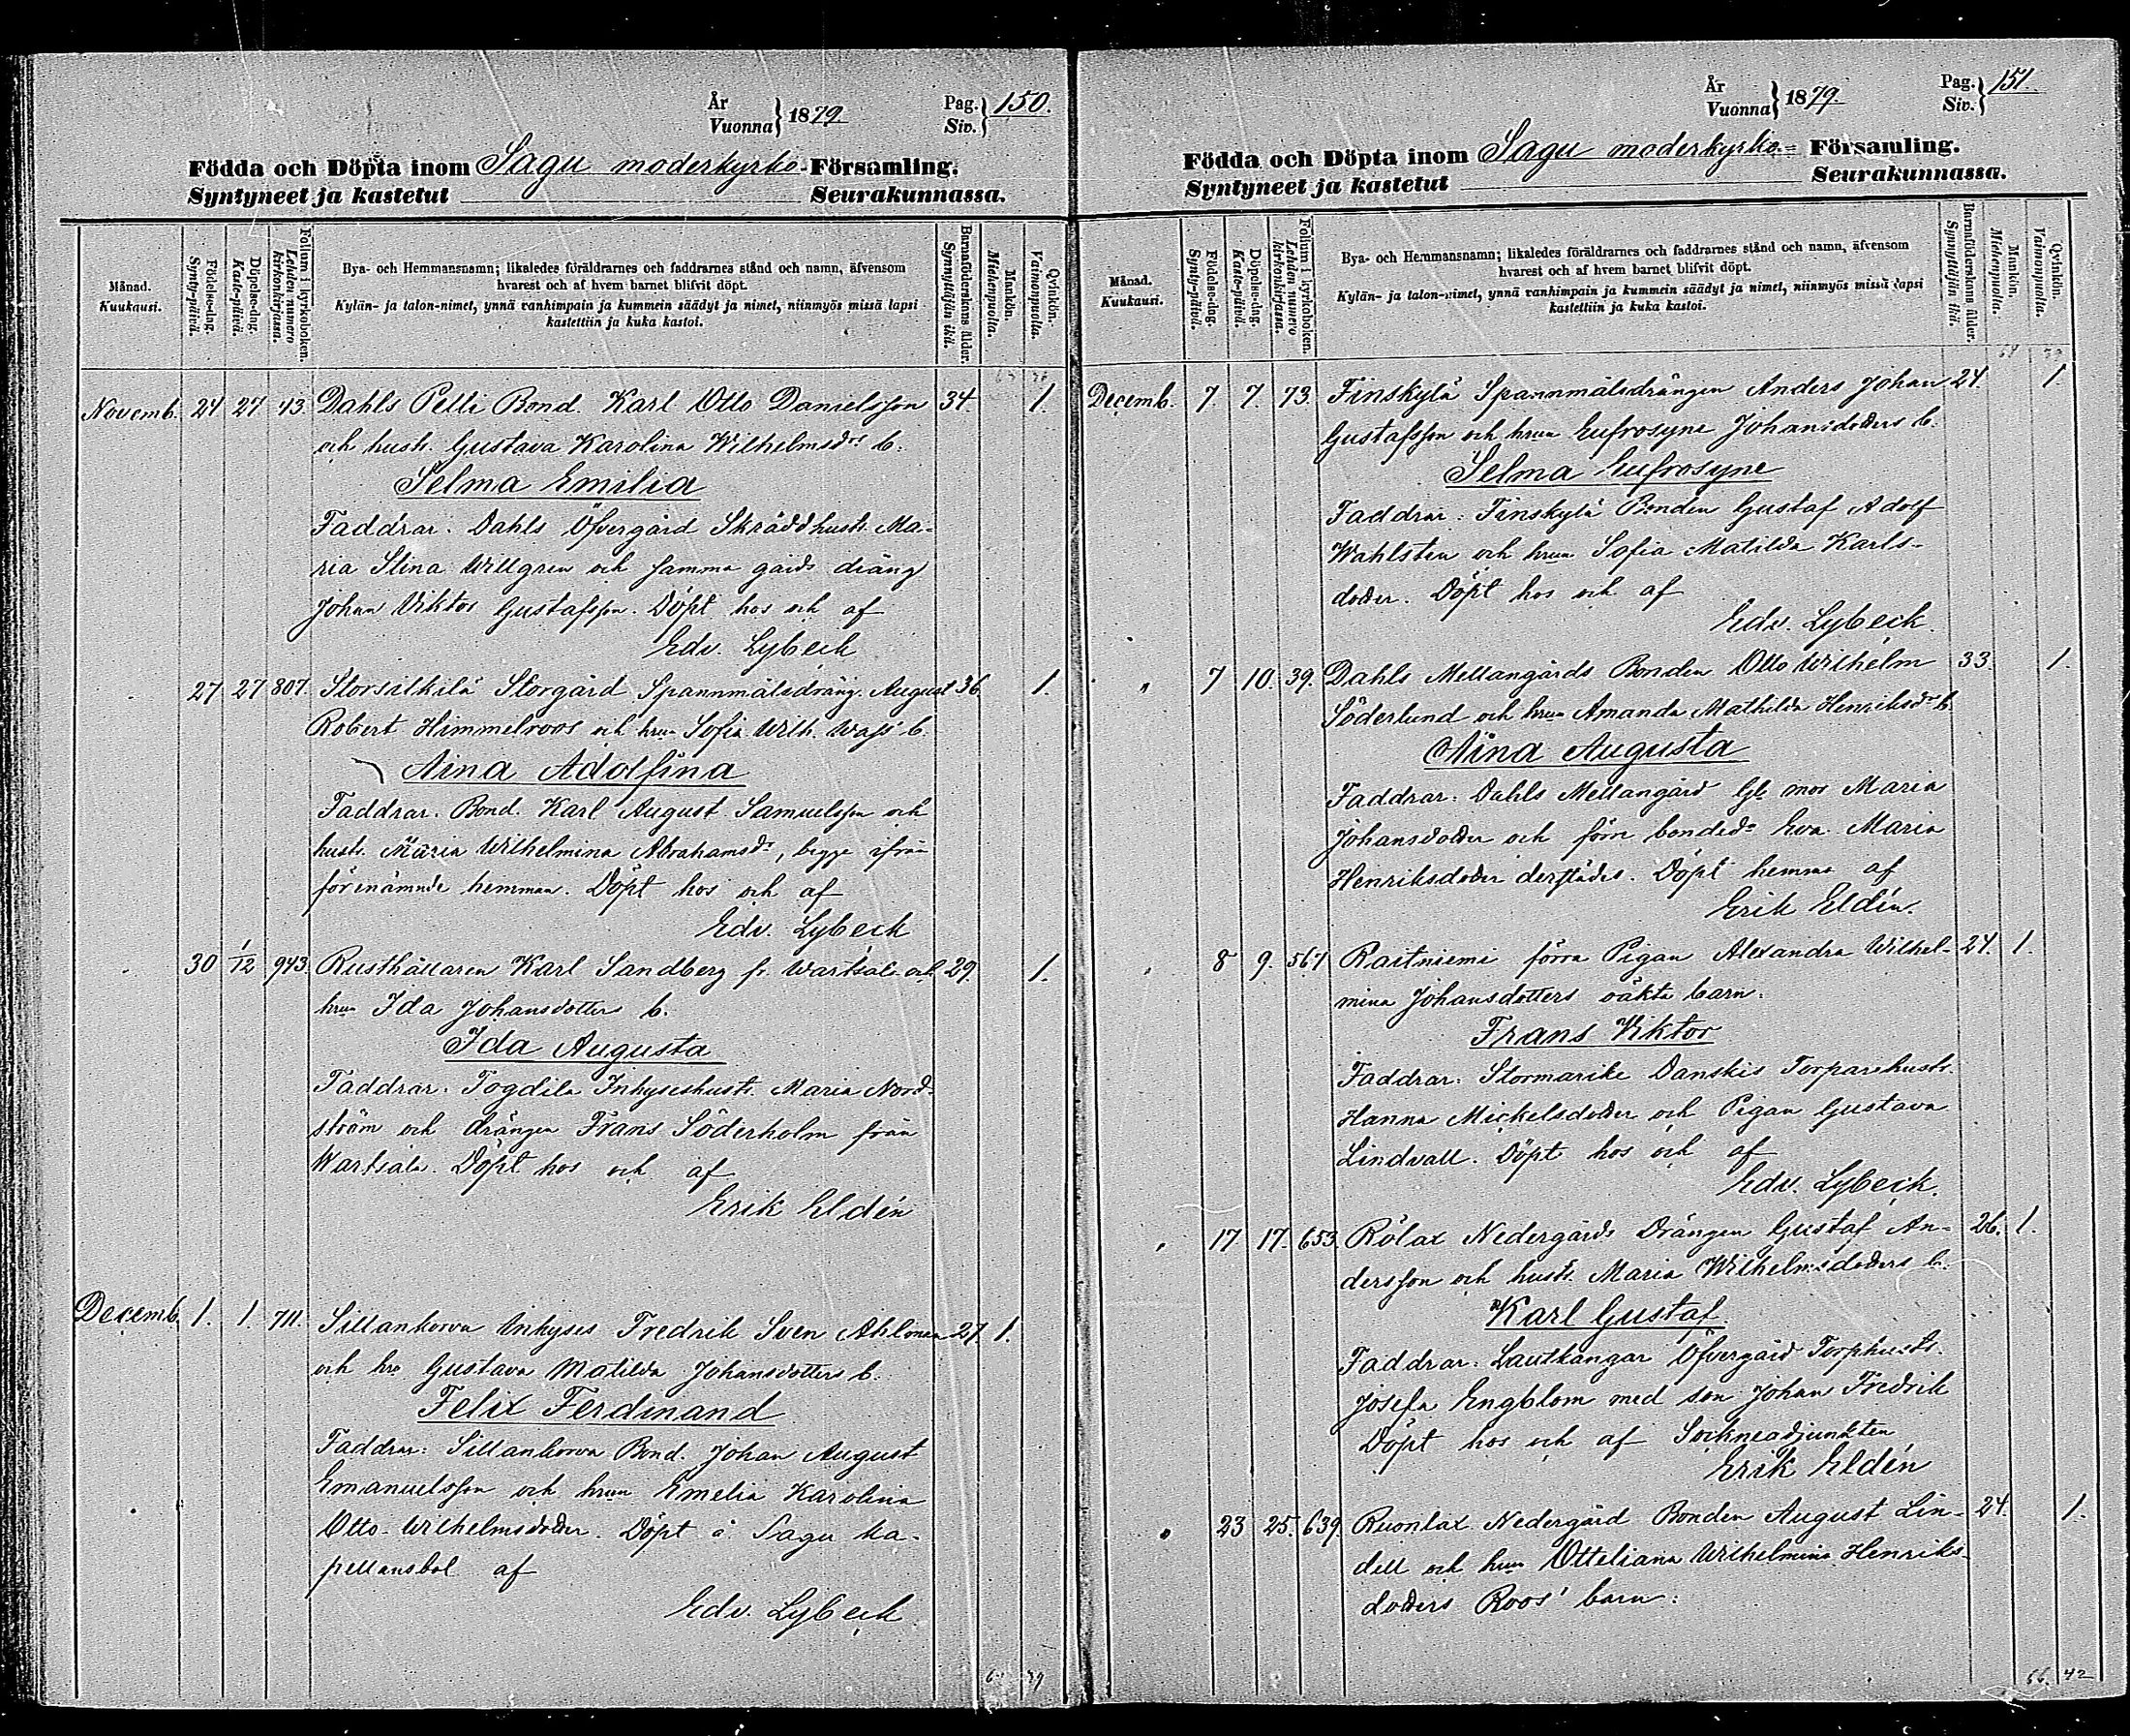 År
Vuonna } 1879.
Pag.
Siv. } 150.
Födda och Döpta inom Sagu moderkyrko-Församling.
Syntyneet ja kastetut Seurakunnassa.
Månad.
Kuukausi.
Födelse-dag.
Synty-päivä.
Döpelse-dag.
Kaste-päivä.
Folium i kyrkoboken.
Lehden numero kirkonkirjassa.
Bya- och Hemmansnamn; likaledes föräldrarnes och faddrarnes stånd och namn, äfvensom
hvarest och af hvem barnet blifvit döpt.
Kylän- ja talon-nimet, ynnä vanhimpain ja kummein säädyt ja nimet, niinmyös missä lapsi
kastettiin ja kuka kastoi.
Barnaföderskans ålder.
Synnyttäjän ikä.
Mankön.
Miehenpuolta.
Qvinkön.
Vaimonpuolta.
Novemb. 24 27 43. Dahls Pelli Bond. Karl Otto Danielsson 34. 1.
och hustr. Gustava Karolina Wilhelmsdrs b.
Selma Emilia
Faddrar. Dahls Öfvergård Skräddhustr. Ma-
ria Stina Willgren och samma gårds dräng
Johan Viktor Gustafsson. Döpt hos och af
Edv. Lybeck
27 27 807. Storsilkilä Storgård Spannmålsdräng. August 36. 1.
Robert Himmelroos och hrun Sofia Wilh. Wass' b.
Aina Adolfina
Faddrar. Bond. Karl August Samuelsson och
hustr. Maria Wilhelmina Abrahamsdr, begge ifrån
förenämnde hemman. Döpt hos och af
Edv. Lybeck
30 1/12 943. Rusthållaren Karl Sandberg fr. Wartsala och 29. 1.
hrun Ida Johansdotters b.
Ida Augusta
Faddrar. Togdila Inhyseshustr. Maria Nord-
ström och drängen Frans Söderholm från
Wartsala. Döpt hos och af
Erik Eldén
Decemb. 1. 1. 711. Sillankorva Inhyses Fredrik Sven Ahlonen 27. 1.
och hru Gustava Matilda Johansdotters b.
Felix Ferdinand
Faddrar: Sillankorva Bond. Johan August
Emanuelsson och hrun Emelia Karolina
Otto-Wilhelmsdotter. Döpt å Sagu ka-
pellansbol af
Edv. Lybeck
39
År
Vuonna } 1879.
Pag.
Siv. } 151.
Födda och Döpta inom Sagu moderkyrko- Församling.
Syntyneet ja kastetut Seurakunnassa.
Månad.
Kuukausi.
Födelse-dag.
Synty-päivä.
Döpelse-dag.
Kaste-päivä.
Folium i kyrkoboken.
Lehden numero kirkonkirjassa.
Bya- och Hemmansnamn; likaledes föräldrarnes och faddrarnes stånd och namn, äfvensom
hvarest och af hvem barnet blifvit döpt.
Kylän- ja talon-nimet, ynnä vanhimpain ja kummein säädyt ja nimet, niinmyös missä lapsi
kastettiin ja kuka kastoi.
Barnaföderskans ålder.
Synnyttäjän ikä.
Mankön.
Miehenpuolta.
Qvinkön.
Vaimonpuolta.
64 39
Decemb. 7. 7. 73. Finskylä Spannmålsdrängen Anders Johan 24. 1.
Gustafsson och hrun Eufrosyne Johansdotters b.
Selma Eufrosyne
Faddrar: Finskylä Bonden Gustaf Adolf
Wahlsten och hrun Sofia Matilda Karls-
dotter. Döpt hos och af
Edv. Lybeck.
" 7 10. 39. Dahls Mellangårds Bonden Otto Wilhelm 33. 1.
Söderlund och hrun Amanda Mathilda Henriksdrs b.
Aina Augusta
Faddrar: Dahls Mellangård Gl. mor Maria
Johansdotter och förre bondedr Eva Maria
Henriksdotter derstädes. Döpt hemma af
Erik Eldén.
" 8 9. 567 Raitniemi förra Pigan Alexandra Wilhel- 24. 1.
mina Johansdotters oäkta barn.
Frans Viktor
Faddrar: Stormarike Danskis Torparehustr.
Hanna Mickelsdotter och Pigan Gustava
Lindvall. Döpt hos och af
Edv. Lybeck.
" 17 17. 653. Rölax Nedergårds Drängen Gustaf An- 26. 1.
dersson och hustr. Maria Wilhelmsdotters b.
Karl Gustaf.
Faddrar: Lautkangar Öfvergård Torphustr.
Josefa Engblom med son Johan Fredrik
Döpt hos och af Sockneadjunkten
Erik Eldén
" 23 25. 639. Ruonlax Nedergård Bonden August Lin- 24. 1.
dell och hrun Otteliana Wilhelmina Henriks-
dotters Roos' barn:
66. 42